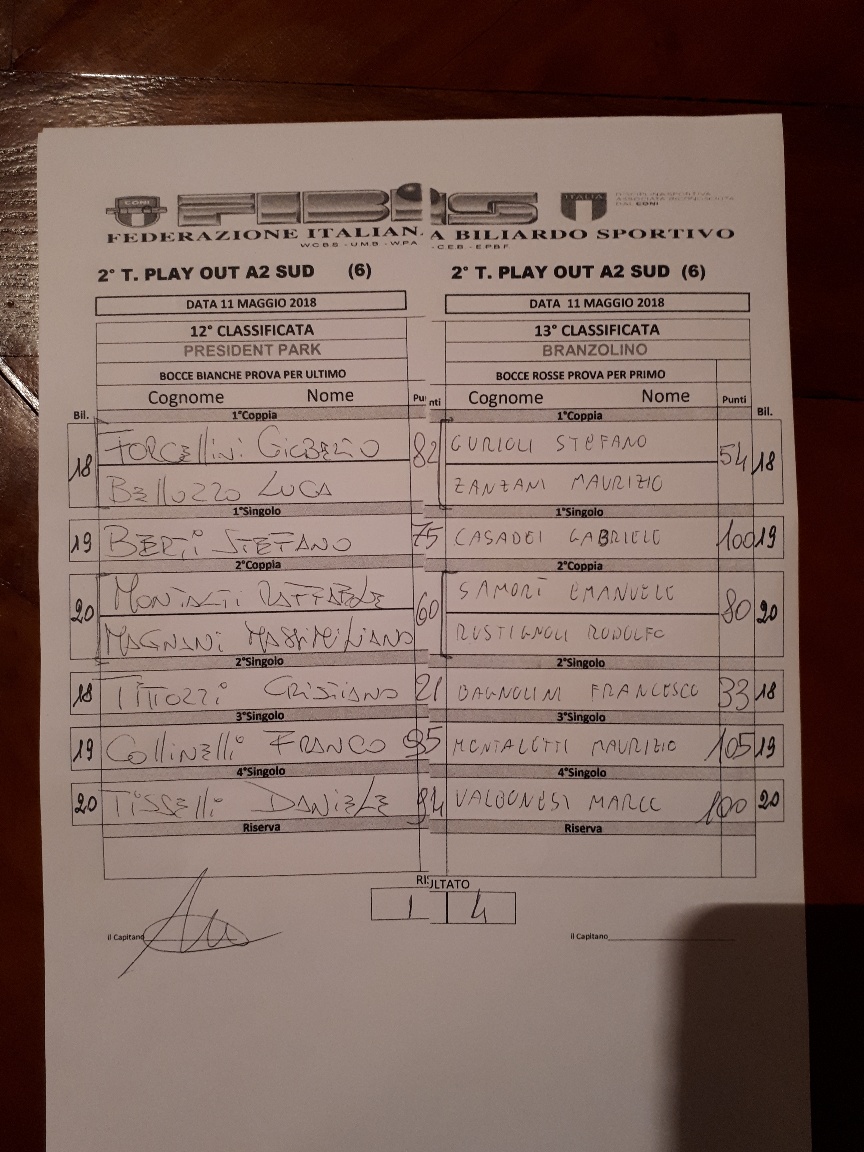 CONI FIBiS ITALIA
FEDERAZIONE ITALIANA BILIARDO SPORTIVO
W.C.B.S. - U.M.B. - W.P.A. - C.E.B. - E.P.B.F.
2° T. PLAY OUT A2 SUD (6) 2° T. PLAY OUT A2 SUD (6)
DATA 11 MAGGIO 2018 DATA 11 MAGGIO 2018
12° CLASSIFICATA 13° CLASSIFICATA
PRESIDENT PARK BRANZOLINO
BOCCE BIANCHE PROVA PER ULTIMO BOCCE ROSSE PROVA PER PRIMO
Bil. Cognome Nome Punti Cognome Nome Punti Bil.
1°Coppia 1°Coppia
18 FORCEllini GIOBERTO 82 GURIOLI STEFANO 54 18
BEllOZZO LUCA ZANZANI MAURIZIO
1°Singolo 1°Singolo
19 BERTi STEFANO 75 CASADEI GABRIELE 100 19
2°Coppia 2°Coppia
20 MONTALTI RAFFAELE 60 SAMORÌ EMANUELE 80 20
MAGNANi MASSIMILIANO RUSTIGNOLI RODOLFO
2°Singolo 2°Singolo
18 TITTOZZi CRISTIANO 21 BAGNOLINI FRANCESCO 33 18
3°Singolo 3°Singolo
19 COllINElli FRANCO 95 MONTALETTI MAURIZIO 105 19
4°Singolo 4°Singolo
20 TiSSElli DANiELE 94 VALBONESI MARCO 100 20
Riserva Riserva
RISULTATO
1 4
il Capitano il Capitano